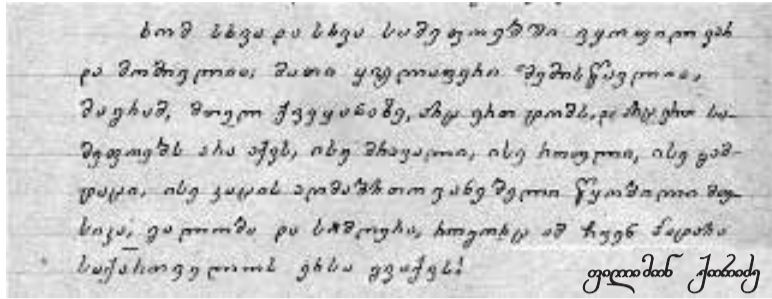 ხომ სხვა და სხვა სამეფოებში ვყოფილვარ
და მომივლია; მათი ყველაფერი შემისწავლია,
მაგრამ, მთელ ქვეყანაზე, არც ერთ ტომს, და არც ერთ სა-
მეფოებს არა აქვს, ისე მრავალი, ისე რთული, ისე
ისე კაცის აღმაფრთოვანებელი წყობილი მუ-
სიკა, გალობა და სიმღერა, როგორც ამ ჩვენ პატარა
საქართველოს ერსა გვაქვს!
ფილიმონ ქორიძე